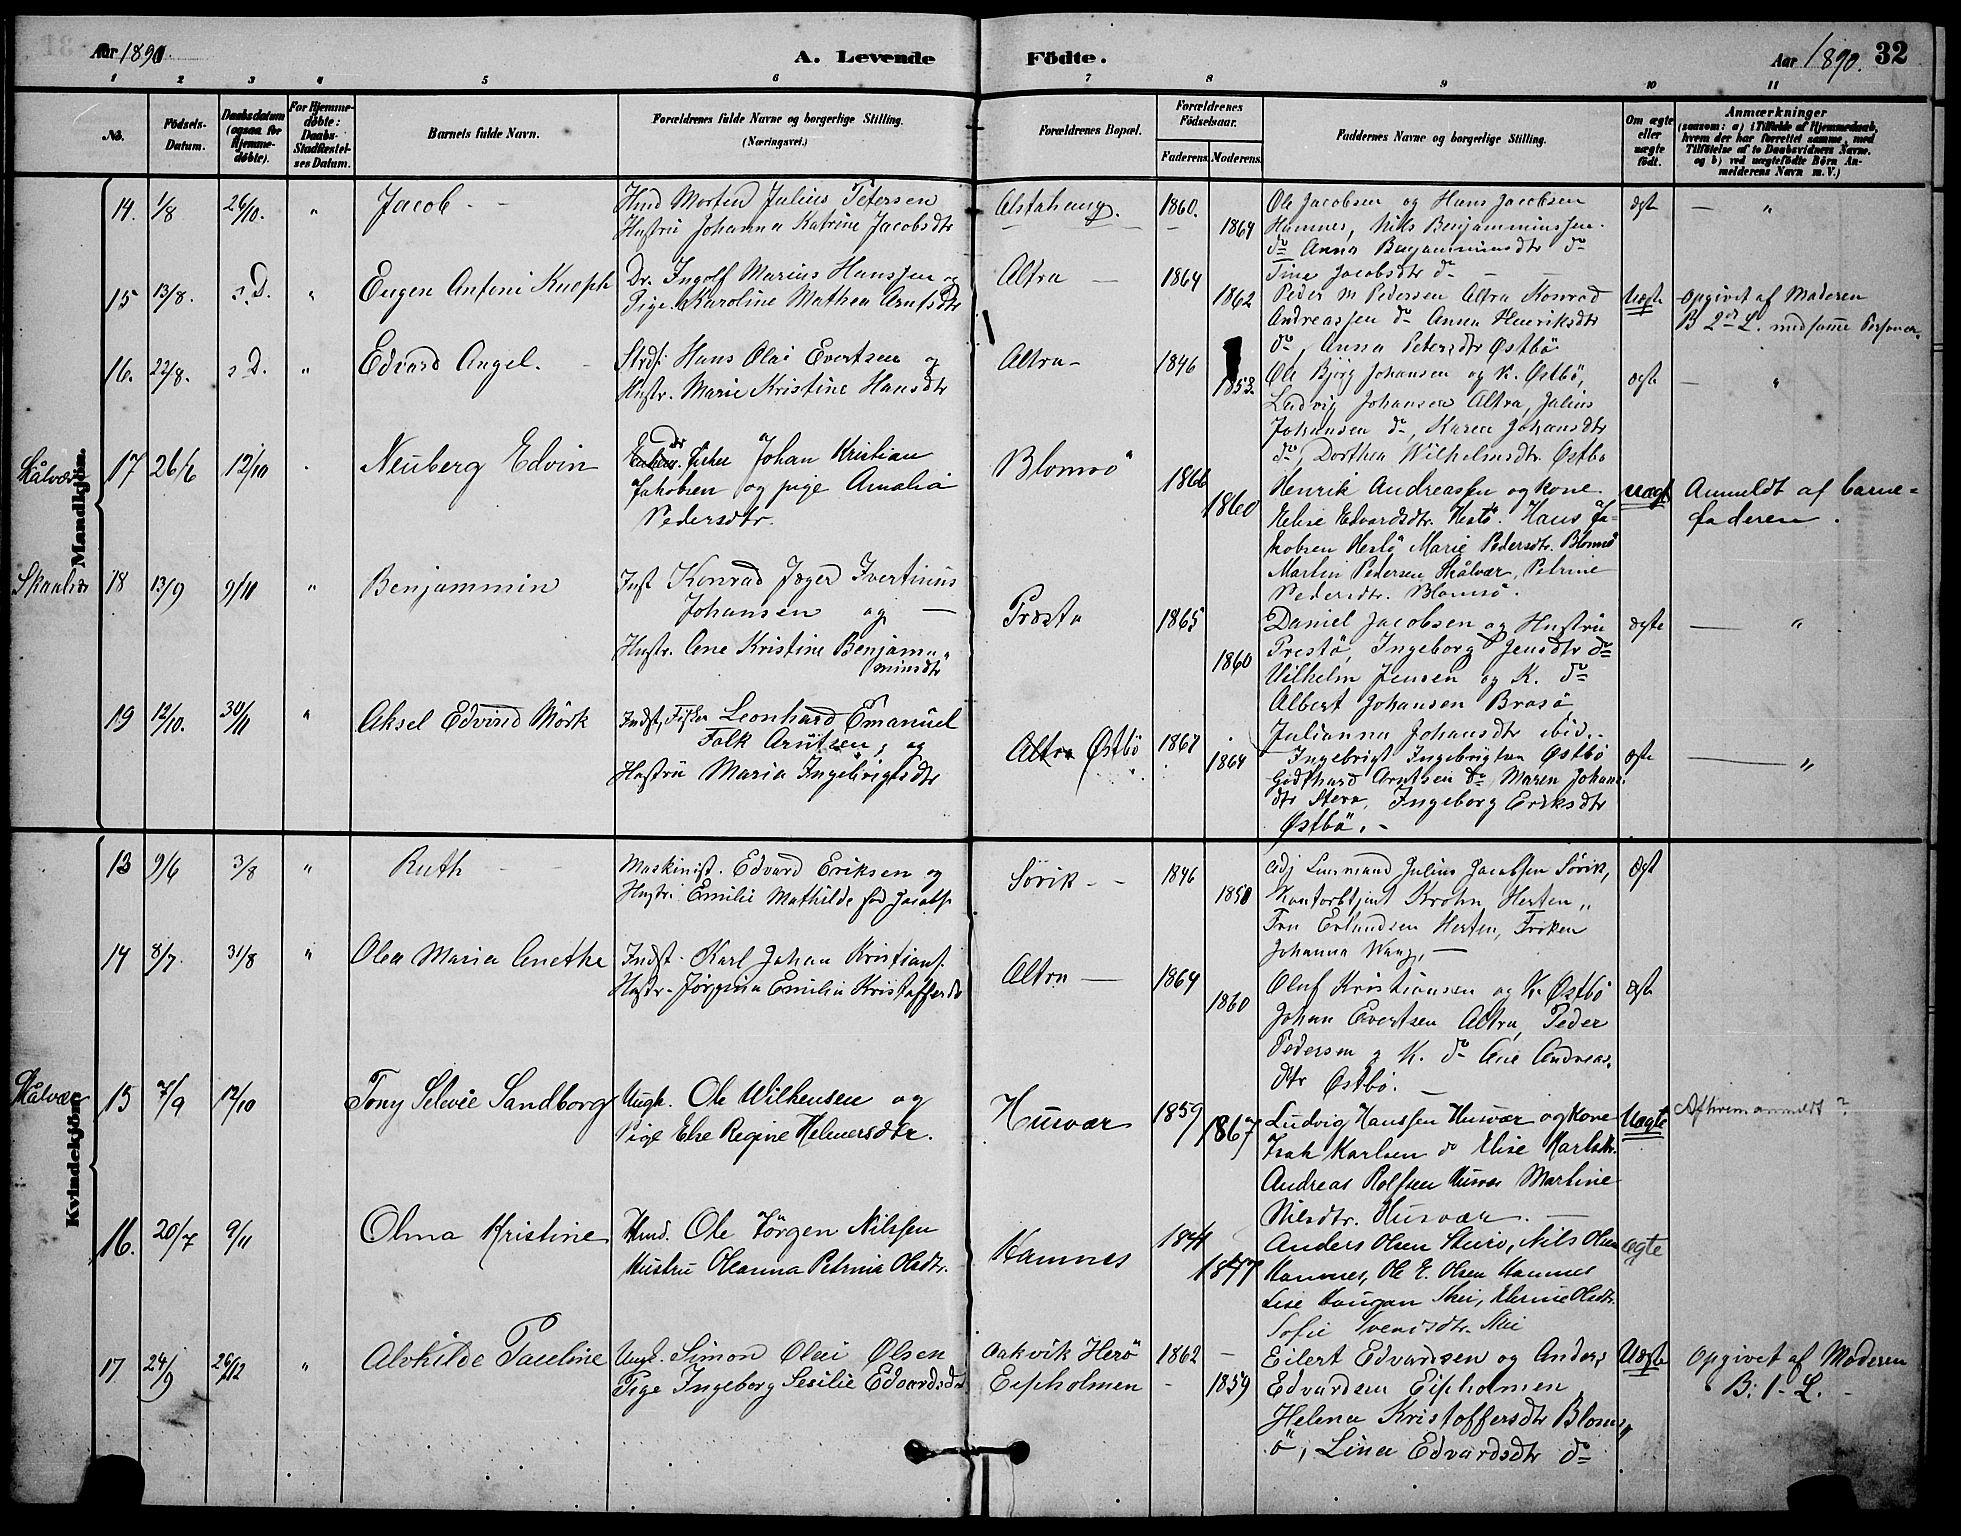 Aar 1890.
A. Levende Födte.
Aar 1890. 32
1 2 3 4 5 6 7 8 9 10 11
No.
Födsels-Datum.
Daabsdatum (ogsaa for Hjemmedøbte).
For Hjemmedøbte: Daabs-Stadfæstelses Datum.
Barnets fulde Navn.
Forældrenes fulde Navne og borgerlige Stilling. (Næringsvei.)
Forældrenes Bopæl.
Forældrenes Födselsaar.
Faderens. Moderens.
Faddernes Navne og borgerlige Stilling.
Om ægte eller uægte födt.
Anmærkninger
(saasom: a) i Tilfælde af Hjemmedaab, hvem der har forrettet samme, med Tilföielse af to Daabsvidners Navne. og b) ved uægtefödte Börn Anmelderens Navn m. V.)
Mandkjön.
14. 1/8 26/10. " Jacob - -
Hmd Morten Julius Petersen
Hustru Johanna Katrine Jacobsdtr
Alstahaug. 1860. 1864
Ole Jacobsen og Hans Jacobsen
Hamnes, Nils Benjamminssen
do Anna Benjamminsdtr do
Tine Jacobsdtr do
ægte — "
15 13/8. s.D. " Eugen Antini Kneph
Dr. Ingolf Marius Hanssen og
Pige. Karoline Mathea Arntsdtr
Altra — 1864 1862
Peder M Pedersen Altra Konrad
Andreassen do Anna Henriksdtr
do, Anna Petersdtr Østbö
Uægte Opgivet af Moderen
B 2den L. med samme Person.
16. 22/8. s D. " Edvard Angel. -
Strds. Hans Olai Evertsen og
Hustr. Marie Kristine Hansdtr
Altra - 1846 1853.
Ole Bjørg Johansen og K. Østbö,
Ludvig Johansen Altra, Julius
Johansen do, Karen Johansdtr
do, Dorthea Wilhelmsdtr. Østbo
ægte — "
Skålvær 17 26/6 12/10 Neuberg Edvin
fisker Johan Kristian
Jakobsen og pige Amalia
Pedersdtr.
Blomsö 1866 1860
Henrik Andreassen og kone
Elise Edvardsdtr. Hestö. Hans Ja-
kobsen Hestö Marie Pedersdtr. Blomsö
Martin Pedersen Skålvær, Petrine
Pedersdtr. Blomsö.
Uægt Anmeldt af barne-
faderen.
18 13/9 9/11 " Benjammin
Inst Konrad Jæger Ivertinus
Johansen og —
Hustr. Ane Kristine Benjam-
minsdtr
Præstö 1865 1860
Daniel Jacobsen og Hustru
Prestö, Ingeborg Jensdtr do
Vilhelm Jensen og K. do
Albert Johansen Brasö
Julianna Johansdtr ibid.
ægte — "
19 12/10. 30/11 " Aksel Edvind Mörk
Indst, Fisker Leonhard Emanuel
Falk Arntsen, og
Hustru Maria Ingebrigtsdtr
Altra Østbö 1867 1864
Ingebrigt Ingebrigtsen Østbö
Godthard Arntsen do, Maren Johans
dtr Stero, Ingeborg Eriksdtr
Østbö. -
ægte — "
Kvindekjön.
13 9/6 3/8 " Ruth - -
Maskinist. Edvard Eriksen og
Hustru Emilie Mathilde fød Jacobs.
Sörvik - - 1846 1850
adj Lensmand Julius Jacobsen Sörvik,
Kontorbtjent Krohn Herten,
Fru Erlandsen Herten, Frøken
Johanna Wang, —
ægt
14 8/7. 31/8 " Olea Maria Anetha
Indst. Karl Johan Kristians.
Hustr. Jörgina Emilia Kristoffersdtr
Altra — 1864 1860
Oluf Kristiansen og K. Østbö
Johan Evertsen Altra, Peder
Pedersen og K. do Ane Andreas-
dtr Østbö. —
ægte
Skålvær 15 7/9 12/10 Tony Selvie Sandborg
Ungk. Ole Wilhensen og
Pige Else Regine Helmersdtr.
Husvær 1859 1867
Ludvig Hanssen Husvær og kone
Isak Karlsen do Elise Karlsdtr.
Andreas Rolfsen Husvær Martine
Nilsdtr. Husvær. —
Uægte Af hvem anmeldt?
16. 20/7 9/11 Olma Kristine
Hmd. Ole Jörgen Nilssen
Hustru Oleanna Petrina Olsdtr.
Hamnes 1841 1847
Anders Olsen Stuvö, Nils Olsen
Hamnes, Ole E. Olsen Hamnes
Lise Haugan Skei, Elerine Olsdtr.
Sofie Svensdtr. Skei
ægte
17 24/9 26/12 " Alvhilde Pauline
Ungk. Simon Olai Olsen
Pige Ingeborg Sesilie Edvardsdtr
Aakvik Herö
Eipholmen 1862 1859
Eilert Edvardsen og Anders
Edvardsen Eipholmen
Helena Kristoffersdtr Bloms-
ö, Lina Edvardsdtr do
Uægte Opgivet af Moderen
B: 1 - L.